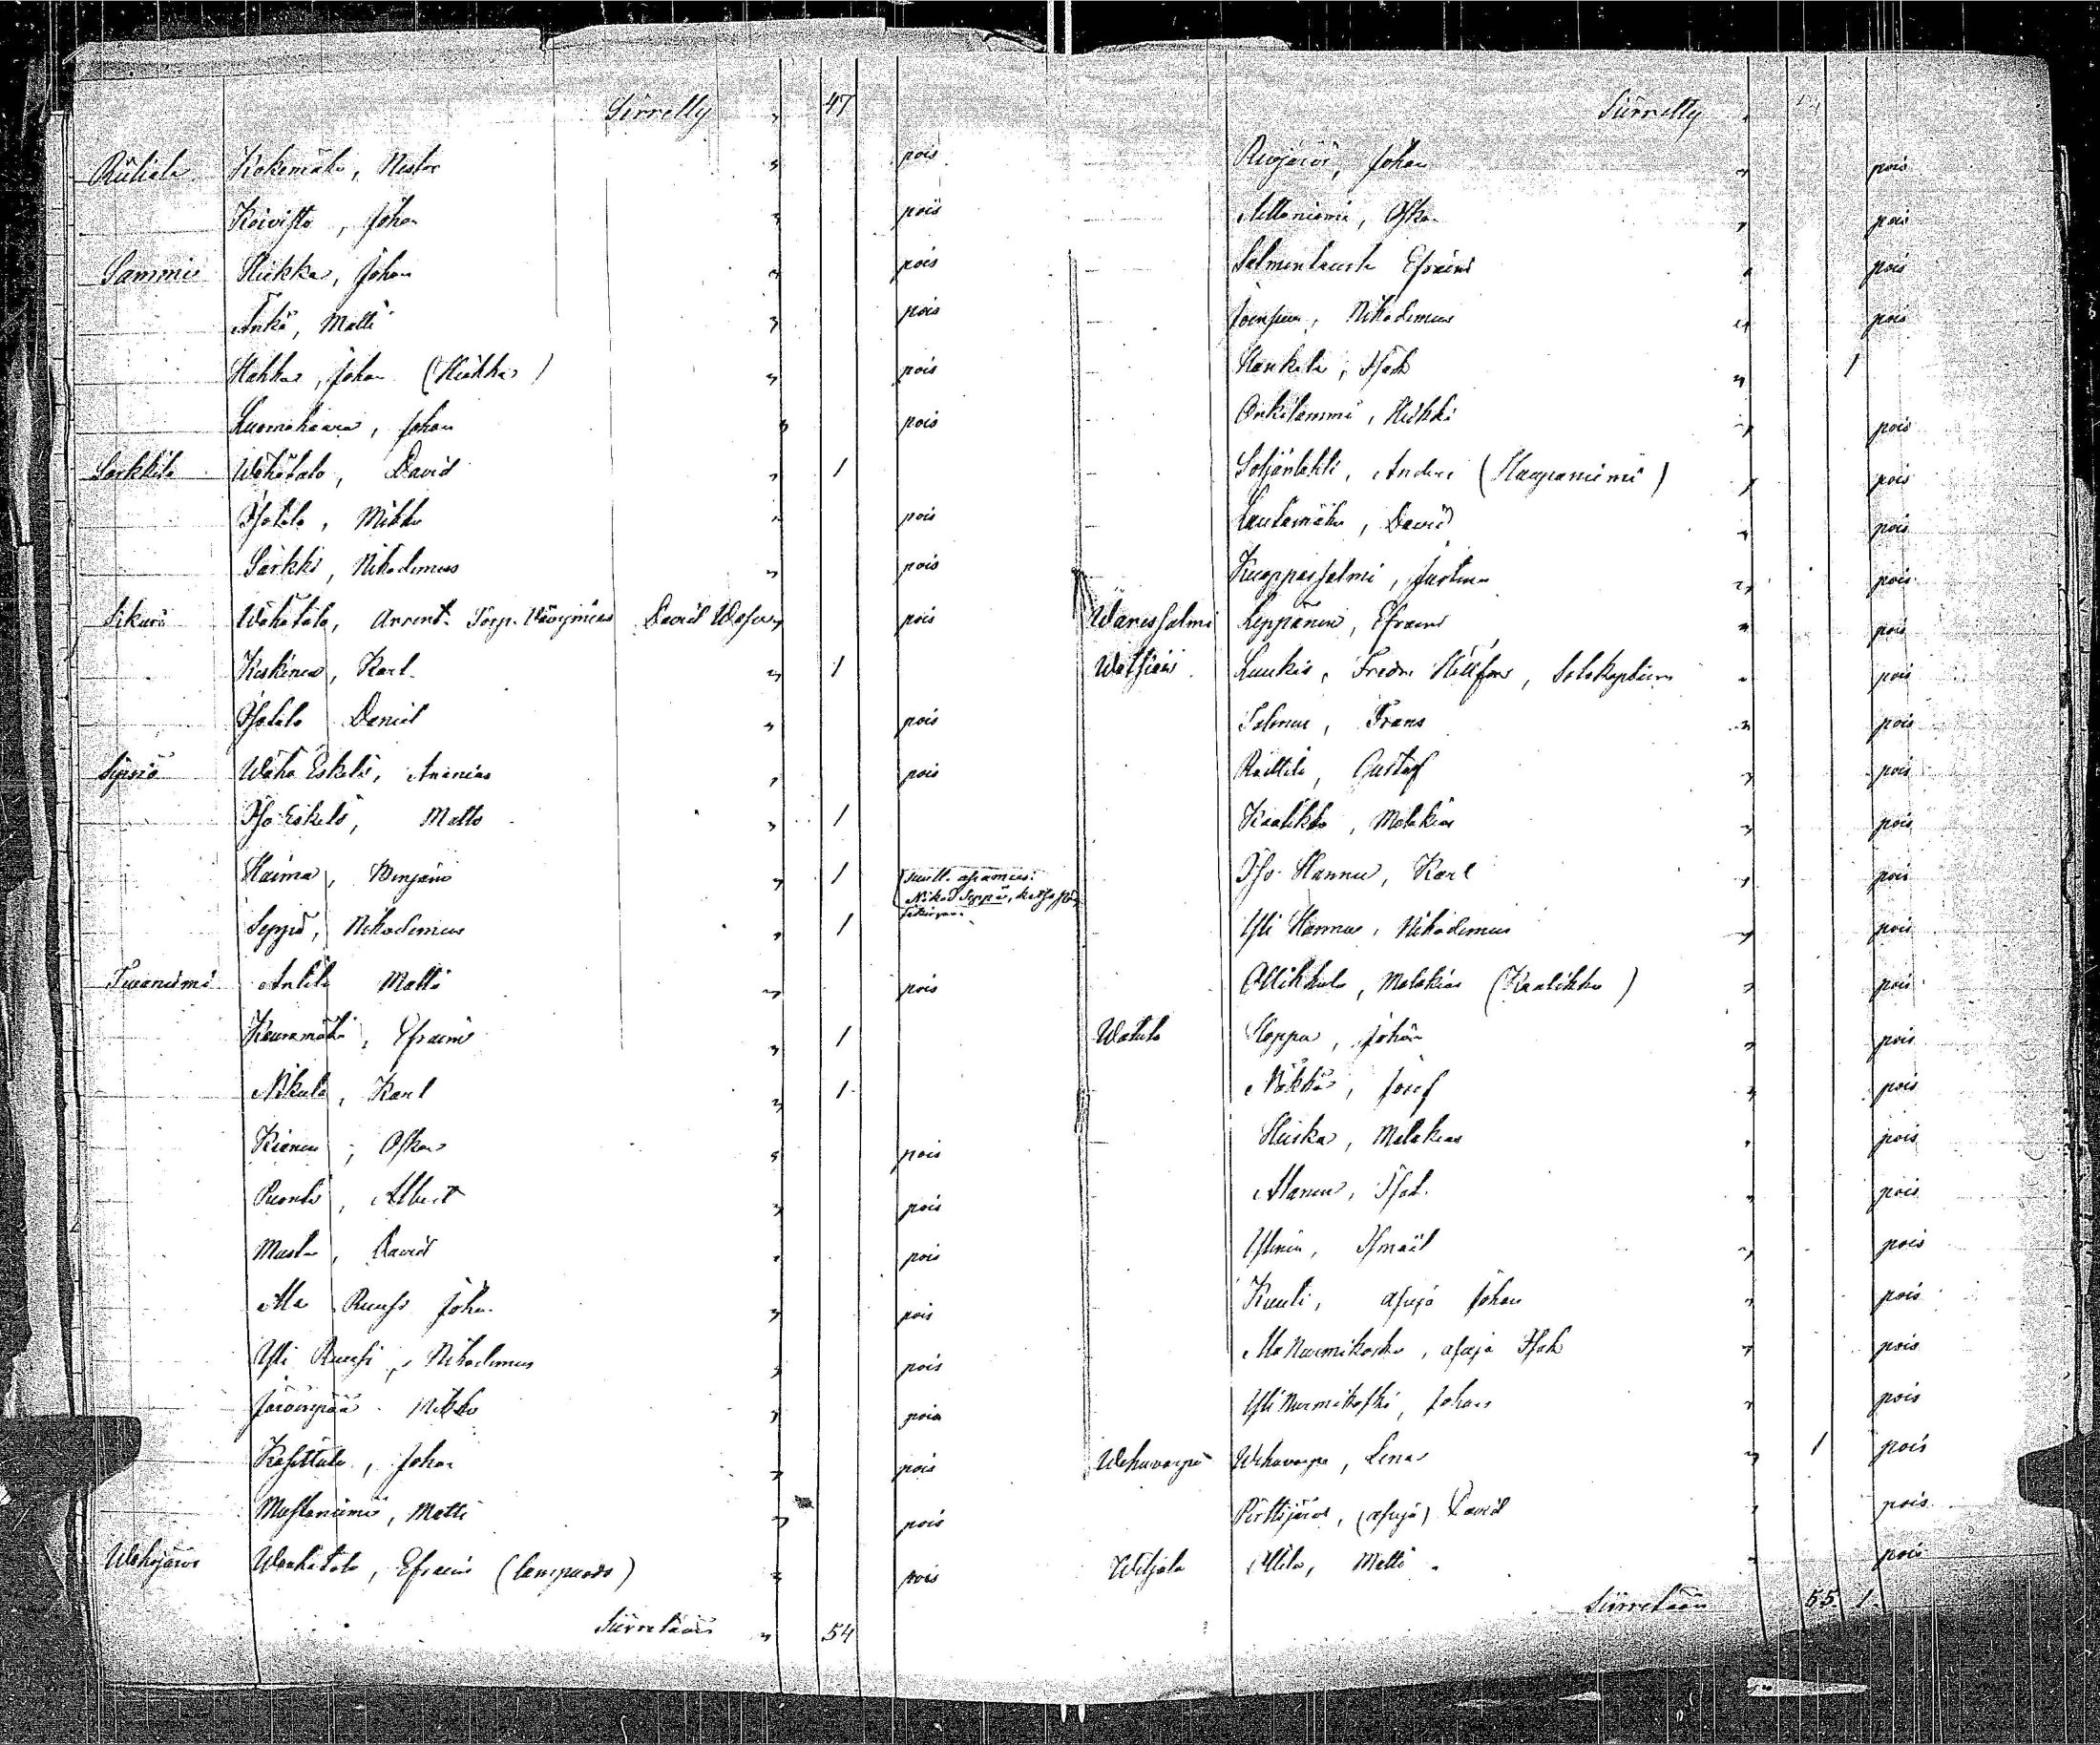 Siirretty „ 47
Riiliala Kokemäki, Nestor „ pois
Koivisto, Johan „ pois
Sammi Hiekka, Johan „ pois
Änkö, Matti „ pois
Hahka, Johan (Hiekka) „ pois
Luomahaara, Johan „ pois
Sarkkila Wähätalo, David „ 1
Isotalo, Mikko „ pois
Särkki, Nikodemus „ pois
Sikuri Wähätalo, David „ pois
Keskinen, Karl „ 1
Isotalo Daniel „ pois
Sipsiö Wähä Eskeli, Ananias „ pois
Iso-Eskeli, Matts „ 1
Haima, Benjam „ 1
Seppä, Nikodemus „ 1
Tuuraniemi Anttila Matti „ pois
Kauramäki, Efraim „ 1
Nikula, Karl „ 1
Kienen, Oskar „ pois
Puonti, Albert „ pois
Musta, David „ pois
Ala Ruusi Johan „ pois
Yli Ruusi, Nikodemus „ pois
Järvenpää Mikko „ pois
Kasittula, Johan „ pois
Mustaniemi, Matti „ pois
Wehojärvi Waahatalo, Efraim (lampuodi) „ pois
Siirretään „ 54
Siirretty „
Ruojärvi, Johan „ pois
Aittoniemi, Oskar „ pois
Salmentausta Efraim „ pois
Joensuu, Nikodemus „ pois
Hankala, Isak „ 1
Onkilammi, Heikki „ pois
Soljanlahti, Anders (Haapaniemi) „ pois
Lautamäki, David „ pois
Kuoppassalmi, Justina „ pois
Waressalmi Leppänen, Efraim „ pois
Watsiais Luukis, Fredr. „ pois
Salmus, Frans „ pois
Raittila, Gustaf „ pois
Kaalikko, Malakias „ pois
Iso-Hannu, Karl „ pois
Yli Hannu, Nikodemus „ pois
Ollikkala, Malakias (Kaalikko) „ pois
Watula Hoppu, Johan „ pois
Näkkä, Josef „ pois
Huiska, Malakias „ pois
Alanen, Isak „ pois
Ylinen, Ismael „ pois
Kuuli, asuja Johan „ pois
Ala Nurmikosko, asuja Isak „ pois
Yli Nurmikoski, Johan „ pois
Wehuvarpe Wehuvarpe, Lena „ 1 pois
Pirttijärvi, (asuja) David „ pois
Wiljala Ollila, Matti „ pois
Siirretään 55. 1.